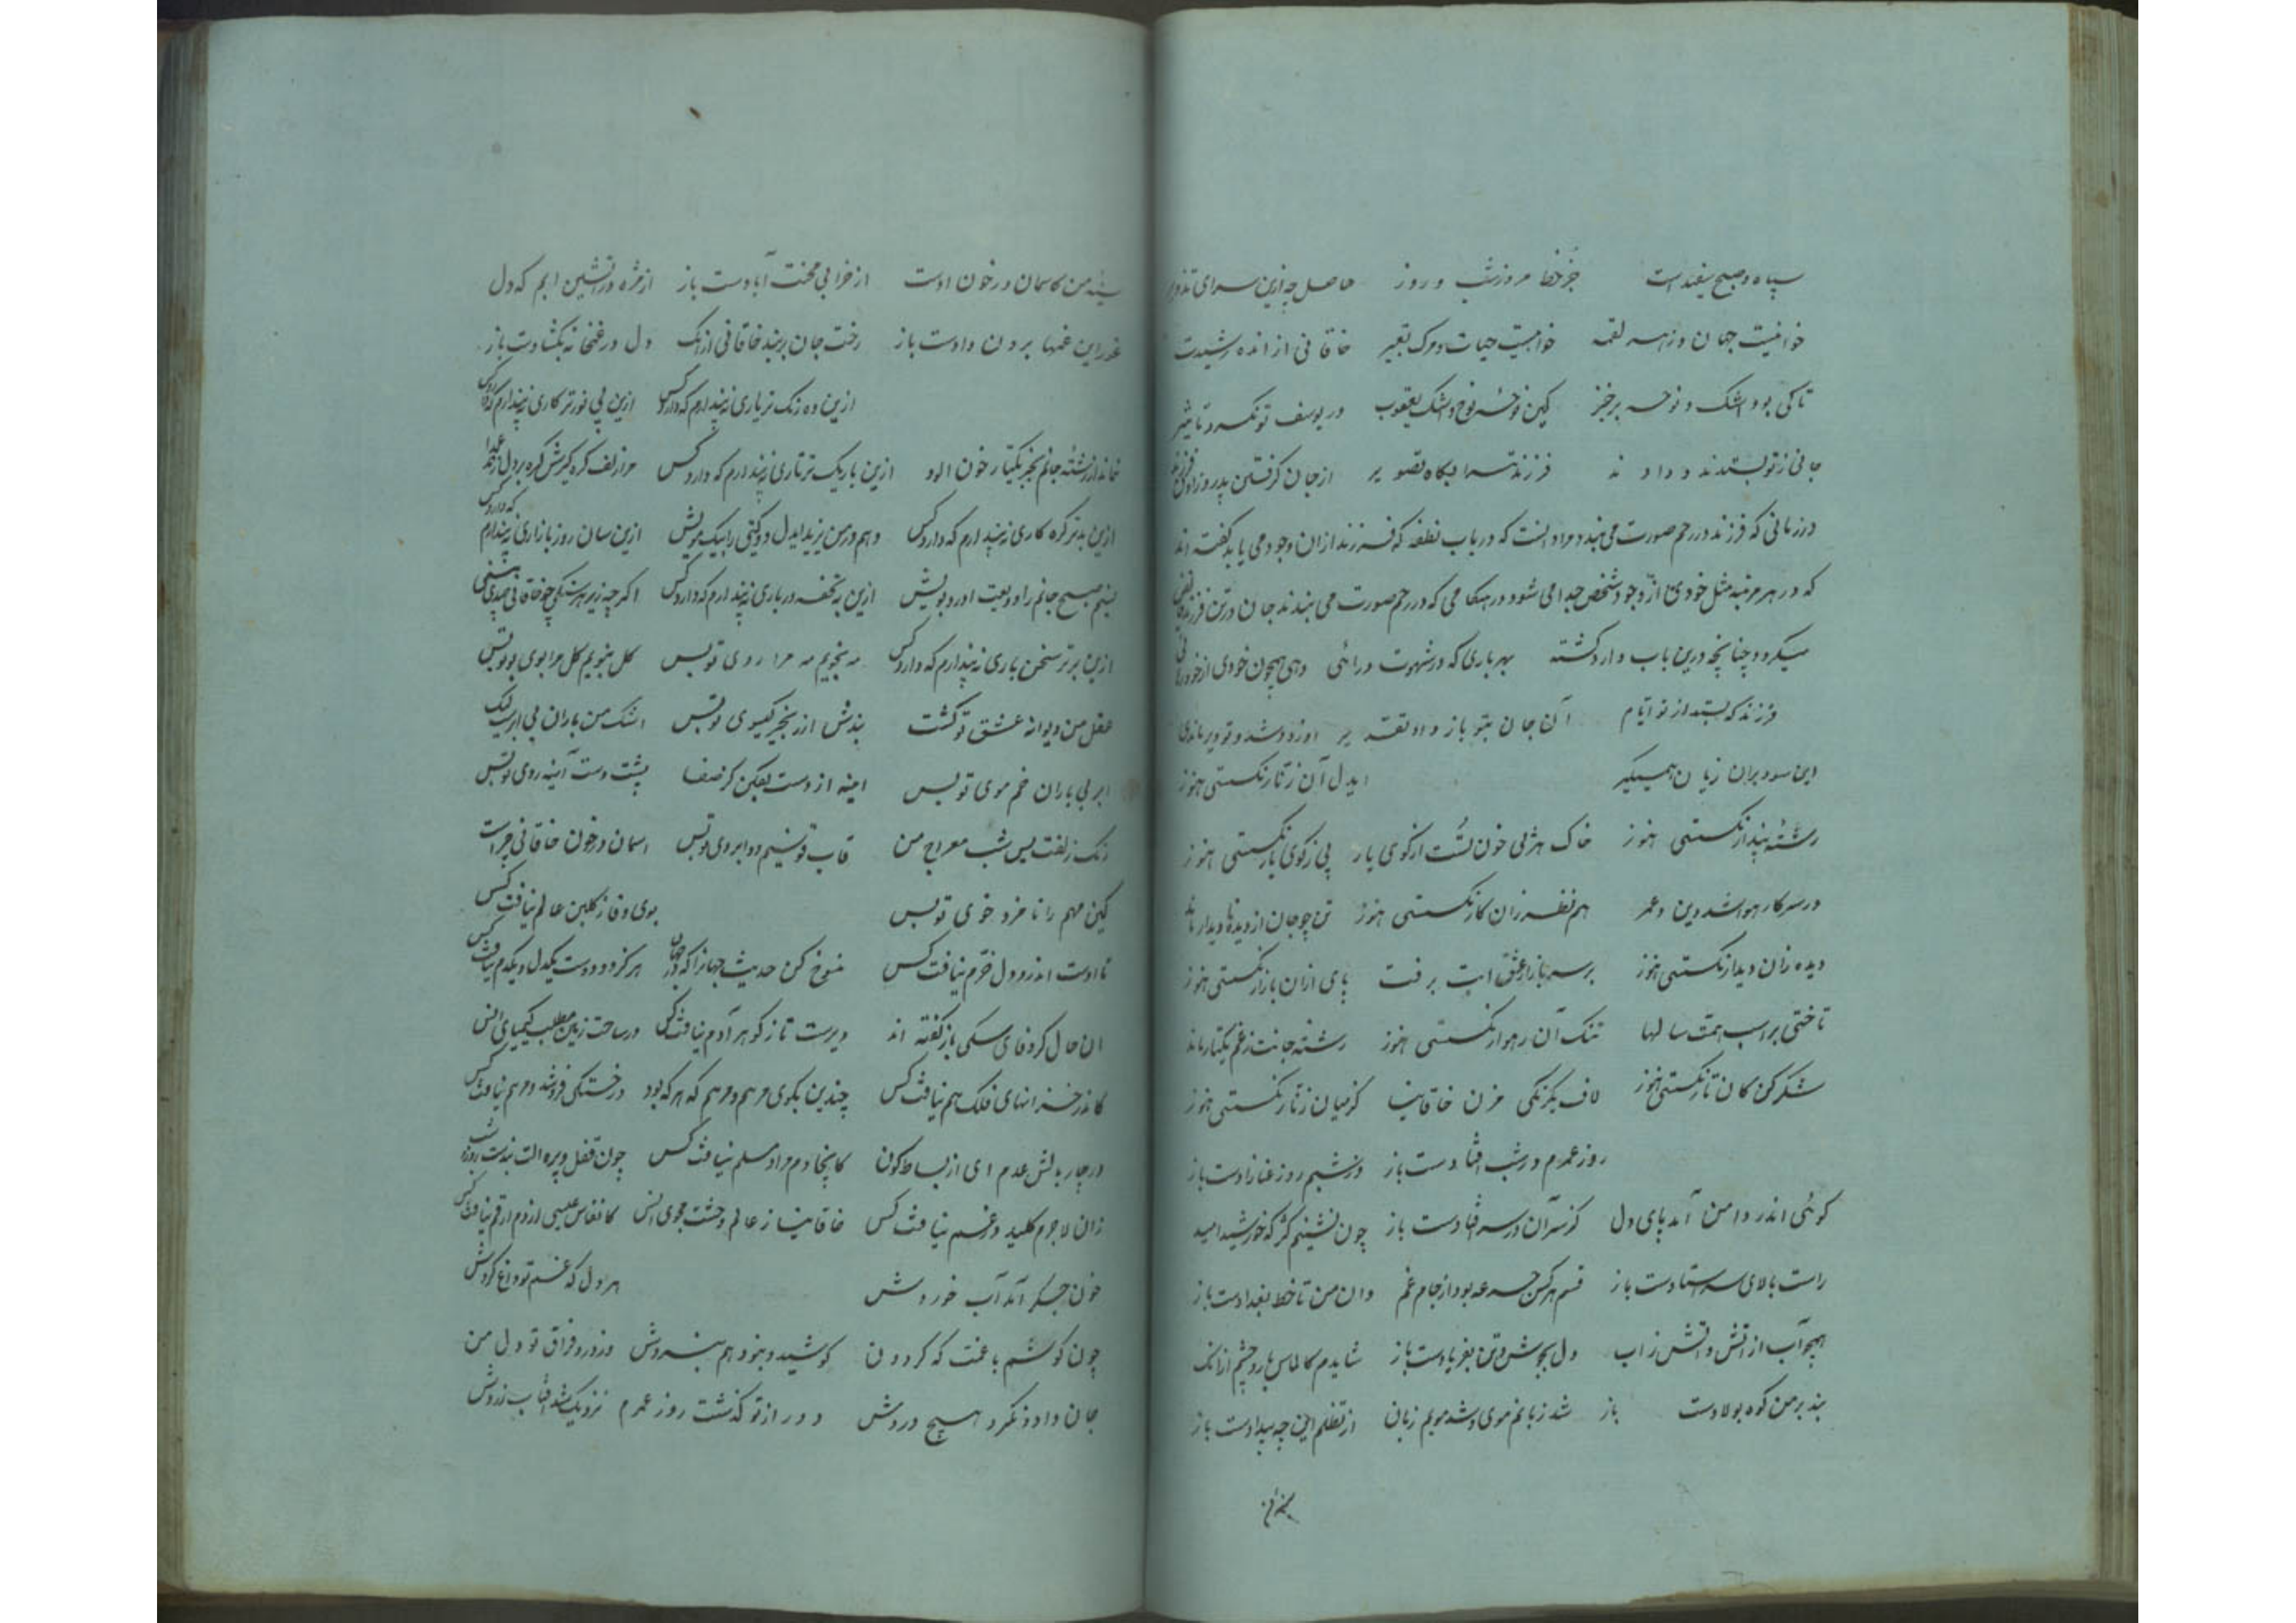 سپاه و صبح سفید است جز خط مزور شب و روز حاصل چه ازین سرای تزویر
خوانیست جهان و زهر لقمه خوابیست حیات و مرک تعبیر خاقانی از انده رشیدت
تا کی بود اشک و نوحه برخیز کین نوحه نوح و اشک یعقوب در یوسف تو نکرد تاثیر
جانی ز تو بستدند و دادند فرزند ترا بگاه تصویر از جان گرفتن پدر و زادن
در زمانی که فرزند در رحم صورت می بندد مراد انست که در باب نطفه که فرزند ازان وجود می یابد گفته اند
که در هر مرتبه مثل خودی از وجود شخص جدا می شود و در هنگامی که در رحم صورت می بندند جان در تن فرزند
میگردد چنانچه درین باب وارد گشته بهر باری که در شهوت درائی دهی همچون خودی از خود
فرزند که بستد از تو ایام آن جان بتو باز داد تقدیر او زود شد و تو دیر ماندی
این سود بران زیان همیگیر ایدل آن زنار نگسستی هنوز
رشتهٔ پندار نگسستی هنوز خاک هر پی خون تست از کوی یار پی ز کوی یار نگسستی هنوز
در سر کار هوا شد دین و عمر هم نظر زان کار نگسستی هنوز تن چو جان از دیده نادیدار ماند
دیده زان دیدار نگسستی هنوز بر سر بازار عشق ابت برفت پای ازان بازار نگسستی هنوز
تاختی بر اسب همت سالها تنک آن رهوار نگسستی هنوز رشتهٔ جانت ز غم یکتار ماند
شکر کن کان تار نگسستی هنوز لاف یکرنگی مزن خاقانیا کز میان زنار نگسستی هنوز
روز عمرم در شب افتادست باز وز شبم روز عنا زادست باز
کوئی اندر دامن آمد پای دل کز سر آن در سر فتادست باز چون نشینم کژ که خورشید امید
راست بالای سر ستادست باز قسم هر کس جرعه بود از جام غم وان من تا خط بغدادست باز
همچو آب از آتش و آتش ز آب دل بجوش و تن بفریادست باز شایدم کالماس بارد چشم ازانک
بند بر من کوه پولادست باز شد زبانم موی و شد مویم زبان از تظلم این چه بیدادست باز
سینهٔ من کاسمان در خون اوست از خرابی محنت آبادست باز از مژه در آتشین ابم که دل
غم راین غمها برون دادست باز رخت جان بربند خاقانی ازانک دل در غمخانه بگشادست باز
ازین ده رنک تر یاری نپندارم که دارد کس ازین بی نورتر کاری نپندارم که دارد کس
نماند از رشتهٔ جانم بجز یکتار خون الود ازین باریک تر تاری نپندارم که دارد کس مرا زلف گره گیرش گره بر دل زند عمدا
ازین بدتر گره کاری نپندارم که دارد کس دهم در من یزید ایدل دو گیتی را بیک مویش ازین سان روز بازاری نپندارم که دارد کس
نسیم صبح جانم را ودیعت اورد بویش ازین به تحفه در باری نپندارم که دارد کس اگرچه زیر هر سنگی چو خاقانی بینی
ازین برتر سخن باری نپندارم که دارد کس مه نجویم مه مرا روی تو بس گل نبویم گل مرا بوی تو بس
عقل من دیوانهٔ عشق تو گشت بندش از زنجیر گیسوی تو بس اشک من باران بی ابر لیک
ابر بی باران خم موی تو بس اینه از دست بفکن کز صفا پشت دست آینهٔ روی تو بس
رنک زلفت بس شب معراج من قاب قوسینم دو ابروی تو بس اسمان در خون خاقانی چراست
کین مهم را نامزد خوی تو بس بوی وفا ز گلبن عالم نیافت کس
تا اوست اندرو دل خرم نیافت کس منسوخ کن حدیث جهانرا که در جهان هرگز دو دوست یکدل و یکدم نیافت کس
ان حال کز وفای سکی باز گفته اند دیرست تا ز گوهر آدم نیافت کس در ساحت زمین مطلب کیمیای انس
کاندر خزانهای فلک هم نیافت کس چندین بگوی مرهم و مرهم که هر که بود در خستگی فرو شد و مرهم نیافت کس
در چار بالش عدم ای از بساط کون کانجا دم مراد مسلم نیافت کس چون قفل و پره الت بندست روز و شب
زان لاجرم کلید در غم نیافت کس خاقانیا ز عالم وحشت مجوی انس کانفاس عیسی از دم ارقم نیافت کس
خون جگر آمد آب خوردش هر دل که غم تو داغ کردش
چون کوشم با غمت که گردون کوشید و نبود هم نبردش در درد فراق تو دل من
جان داد و نکرد هیچ دردش دور از تو گذشت روز عمرم نزدیک شد افتاب زردش